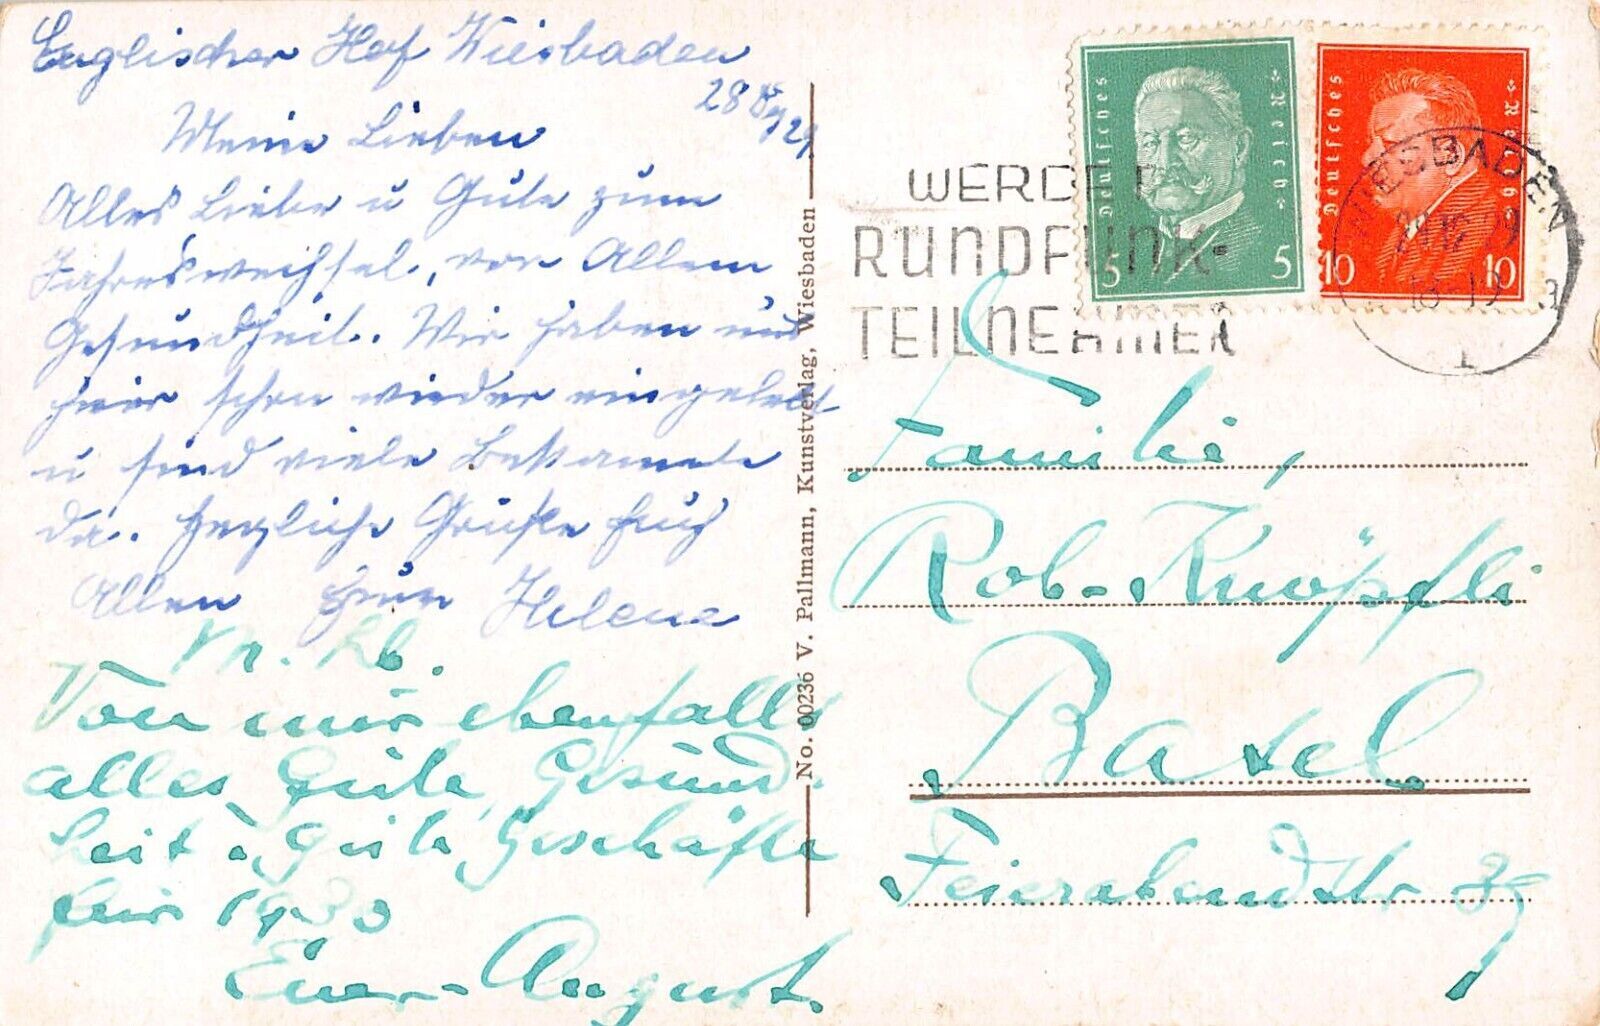 Englischer Hof Wiesbaden
28 8/29
Meine Lieben
Alles Liebe u Gute zum
Jahreswechsel, vor Allem
Gesundheit. Wir haben uns
hier schon wieder eingelebt
u sind viele Bekannte
da. Herzliche Grüße Euch
Allen Eure Helene
Von mir ebenfalls
alles Gute, Gesund-
heit u. Gute Geschäfte
für 1930
Euer August.
No. 00236 V. Pallmann, Kunstverlag, Wiesbaden
WERDET
RUNDFUNK-
TEILNEHMER
Deutsches Reich
5 5
Deutsches Reich
10 10
WIESBADEN
12 29
18-19
1
Familie,
Rob. Knöpfli
Basel
Feierabendstr 39